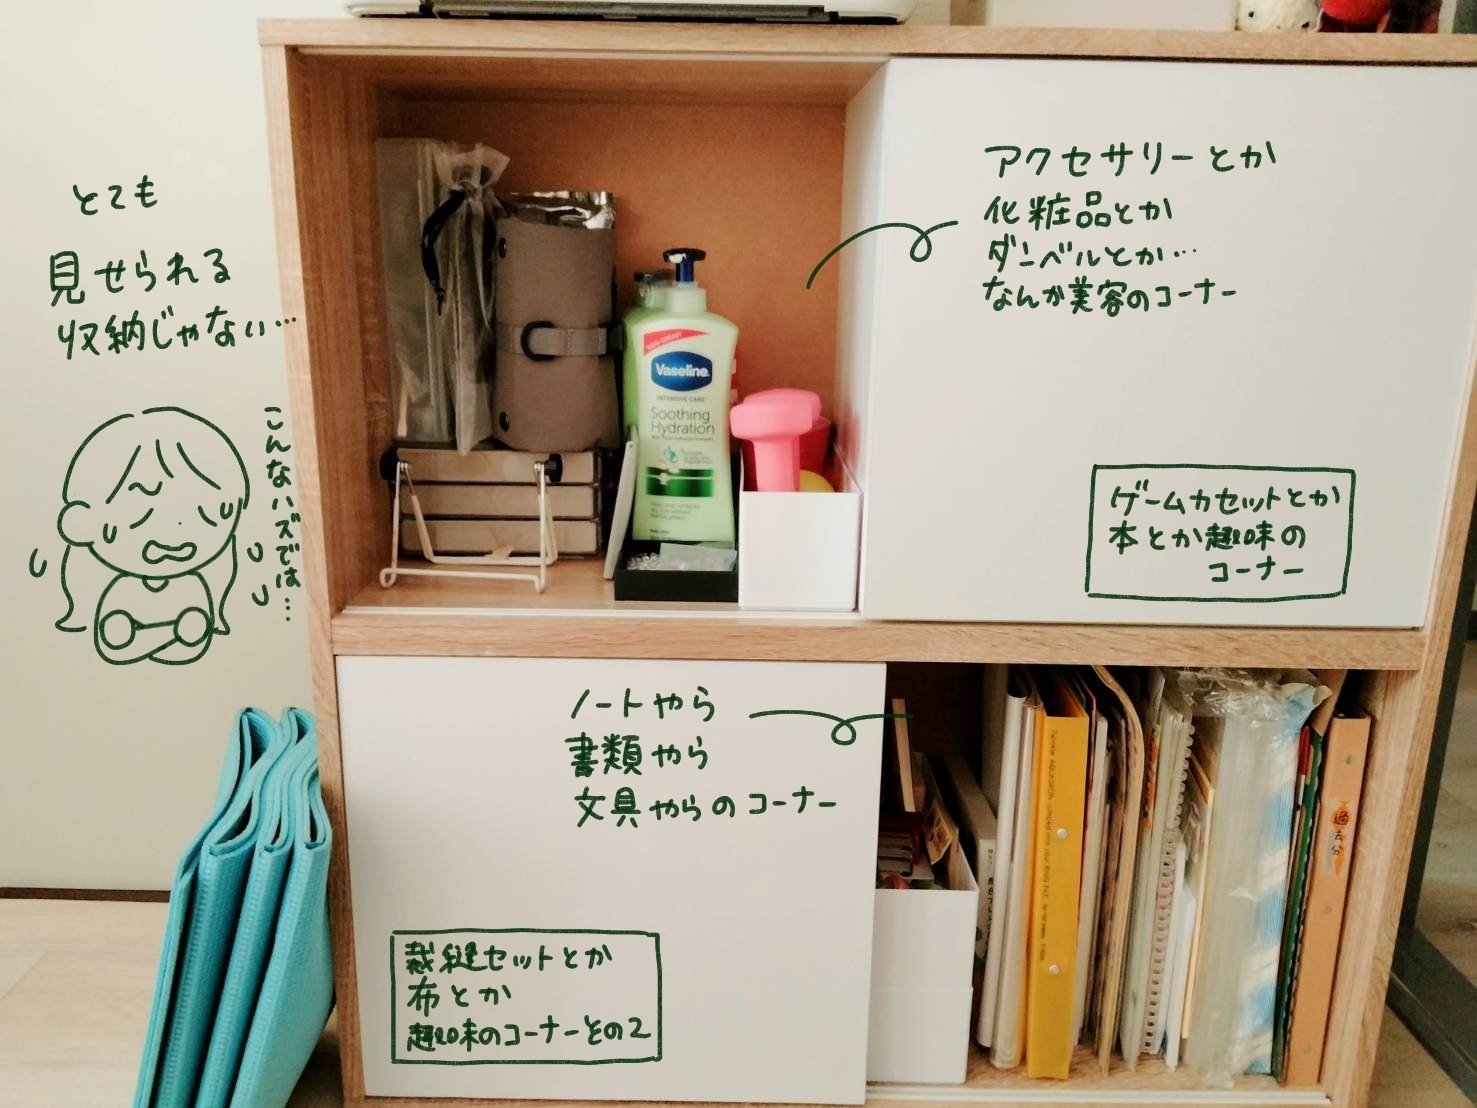 とても
見せられる
収納じゃない…
こんなハズでは…
アクセサリーとか
化粧品とか
ダンベルとか…
なんか美容のコーナー
ゲームカセットとか
本とか趣味の
コーナー
NON-GREASY
Vaseline.
INTENSIVE CARE
Soothing
Hydration
ノートやら
書類やら
文具やらのコーナー
裁縫セットとか
布とか
趣味のコーナーその2
過去分